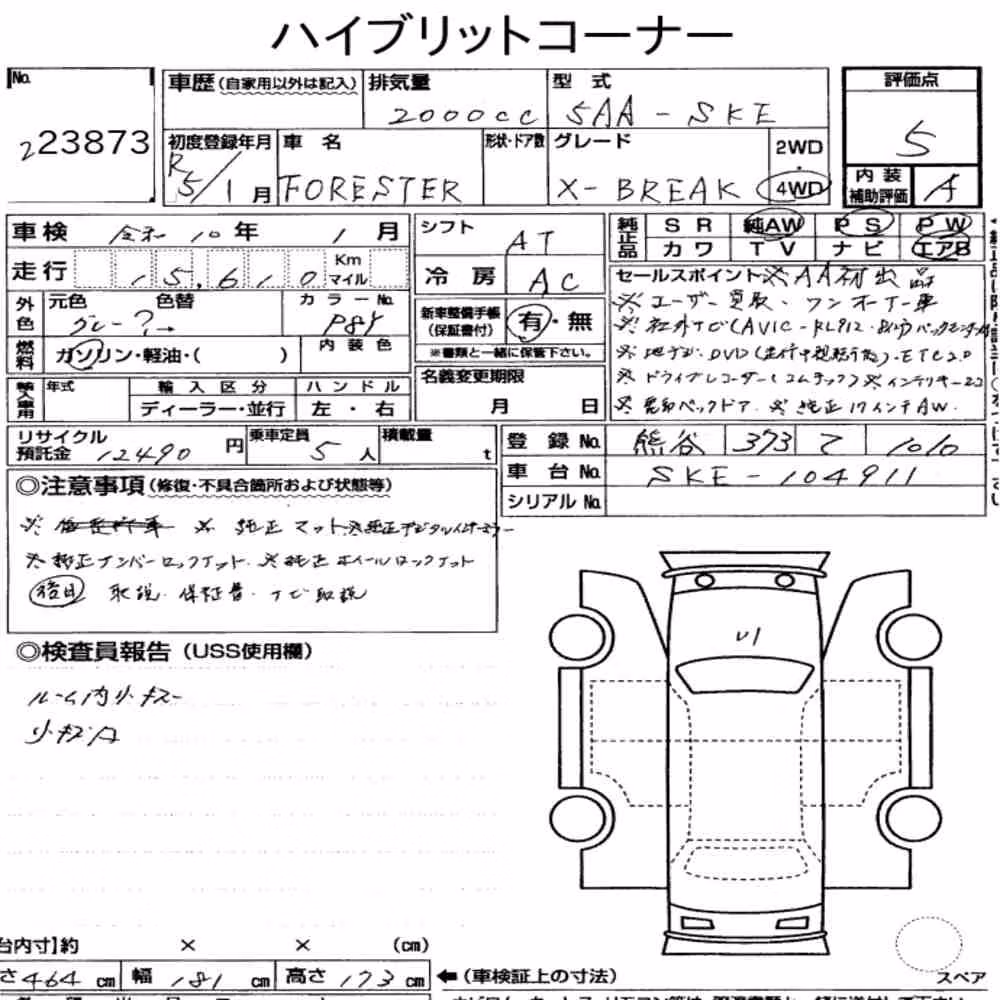 ハイブリットコーナー
No.
223873
車歴(自家用以外は記入)
排気量
2000cc
型式
5AA-SKE
評価点
5
初度登録年月
R5/1月
車名
FORESTER
形状・ドア数
グレード
X-BREAK
2WD
・
4WD
内装
補助評価
A
車検 令和10年 1月
走行 15,610 Km マイル
外色
元色
グレー?→
色替
カラーNo.
P8Y
燃料
ガソリン・軽油・( )
内装色
輸入車用
年式
輸入区分
ディーラー・並行
ハンドル
左・右
シフト
AT
冷房
AC
新車整備手帳
(保証書付)
有・無
※書類と一緒に保管下さい。
名義変更期限
月 日
純正品
SR 純AW PS PW
カワ TV ナビ エアB
セールスポイント ※AA初出品
※ユーザー買取・ワンオーナー車
※社外ナビ(AVIC-RL912
※地デジ.DVD(走行中視聴可能).ETC2.0
※ドライブレコーダー(コムテック)※インテリキー×2
※電動バックドア.※純正17インチAW.
リサイクル
預託金
12490円
乗車定員
5人
積載量
t
登録No. 熊谷 373 て 1010
車台No. SKE-104911
シリアルNo.
◎注意事項(修復・不具合箇所および状態等)
※純正マット※純正デジタルインナーミラー
※純正ナンバーロックナット.※純正ホイールロックナット
後日 取説・保証書・ナビ取説
◎検査員報告(USS使用欄)
ルーム内小キズ
小キズ
U1
台内寸】約 × × (cm)
さ464cm 幅181cm 高さ173cm
←(車検証上の寸法)
スペア